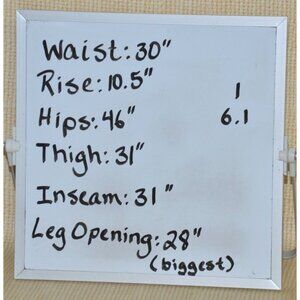 Waist: 30"
Rise: 10.5"
1
Hips: 46"
6.1
Thigh: 31"
Inseam: 31"
Leg Opening: 28"
(biggest)